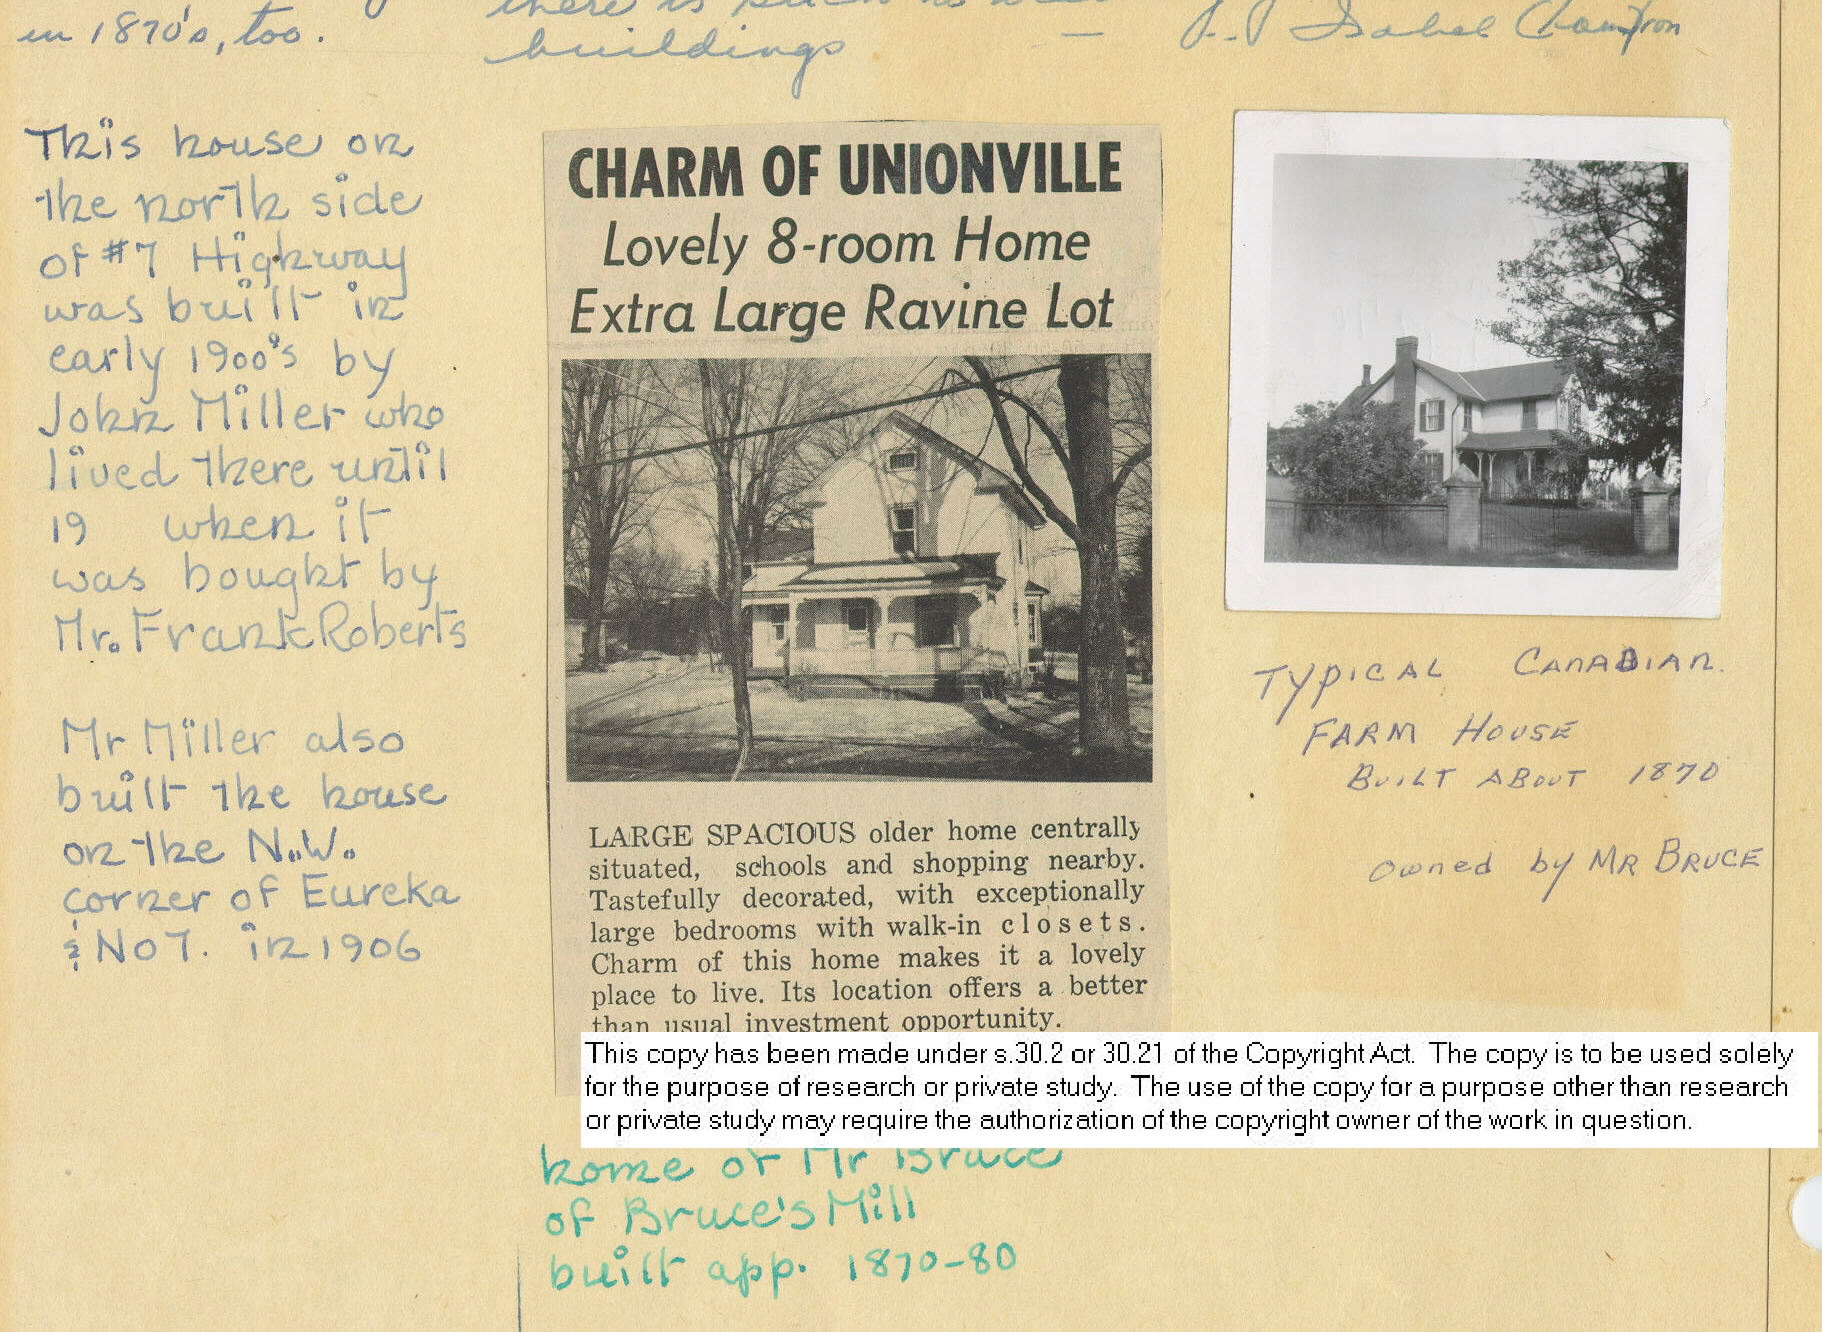 in 1870's, too.
there is
buildings
— Isabel Champion
This house on
the north side
of #7 Highway
was built in
early 1900's by
John Miller who
lived there until
19 when it
was bought by
Mr. Frank Roberts
Mr Miller also
built the house
on the N.W.
corner of Eureka
& No 7. in 1906
CHARM OF UNIONVILLE
Lovely 8-room Home
Extra Large Ravine Lot
LARGE SPACIOUS older home centrally
situated, schools and shopping nearby.
Tastefully decorated, with exceptionally
large bedrooms with walk-in closets.
Charm of this home makes it a lovely
place to live. Its location offers a better
than usual investment opportunity.
TYPICAL CANADIAN.
FARM HOUSE
BUILT ABOUT 1870
owned by MR BRUCE
This copy has been made under s.30.2 or 30.21 of the Copyright Act. The copy is to be used solely
for the purpose of research or private study. The use of the copy for a purpose other than research
or private study may require the authorization of the copyright owner of the work in question.
home of Mr Bruce
of Bruce's Mill
built app. 1870-80